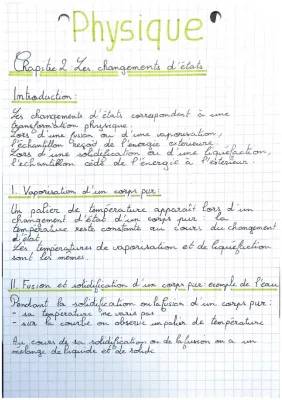 Physique
Chapitre 2 Les changements d'états
Introduction :
Les changements d'états correspondent à une
transformation physique.
Lors d'une fusion ou d'une vaporisation,
l'échantillon reçoit de l'énergie extérieure.
Lors d'une solidification ou d'une liquéfaction,
l'échantillon cède de l'énergie à l'extérieur.
I. Vaporisation d'un corps pur:
Un palier de température apparaît lors d'un
changement d'état d'un corps pur : la
température reste constante au cours du changement
d'état.
Les températures de vaporisation et de liquéfaction
sont les mêmes.
II. Fusion et solidification d'un corps pur: exemple de l'eau
Pendant la solidification ou la fusion d'un corps pur :
- sa température ne varie pas
- sur la courbe on observe un palier de température
Au cours de sa solidification ou de la fusion on a un
mélange de liquide et de solide